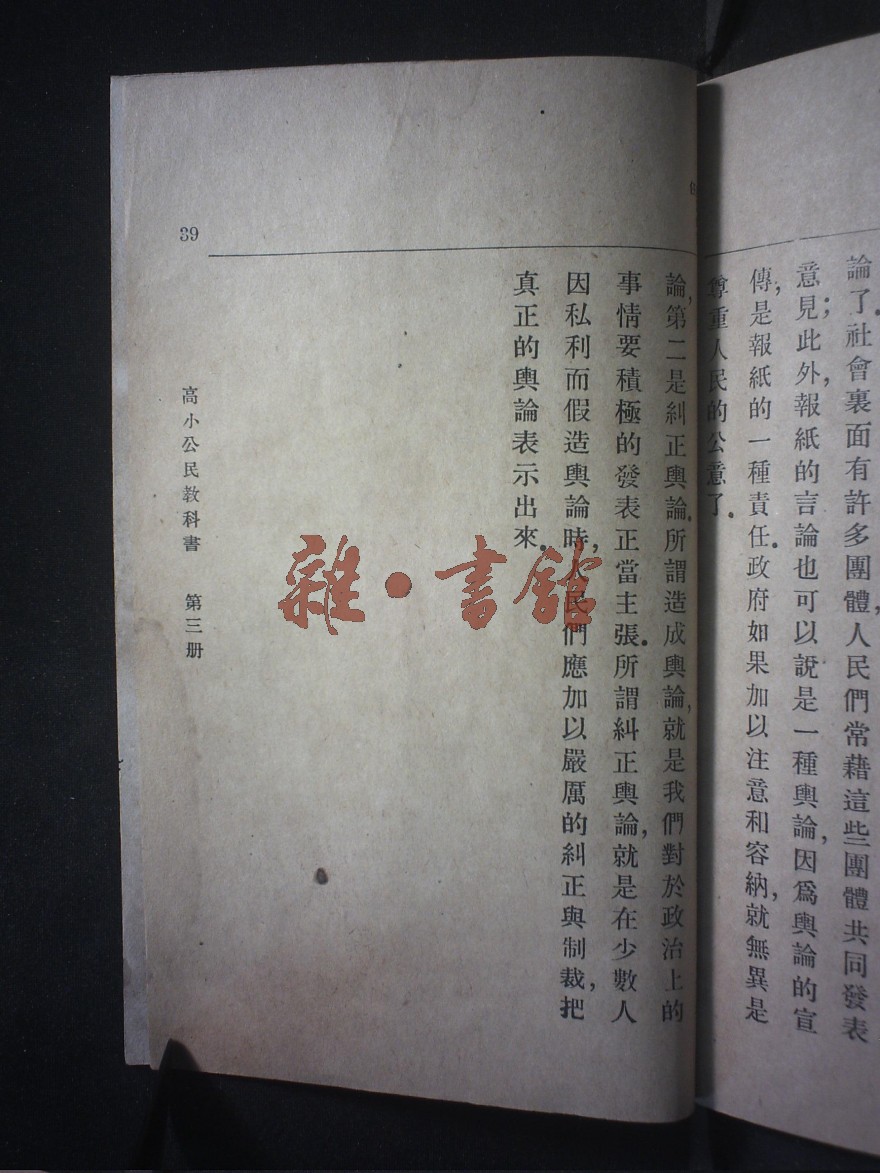 論了.社會裏面有許多團體,人民們常藉這些團體共同發表
意見;此外,報紙的言論也可以說是一種輿論,因爲輿論的宣
傳,是報紙的一種責任.政府如果加以注意和容納,就無異是
尊重人民的公意了.
論,第二是糾正輿論.所謂造成輿論,就是我們對於政治上的
事情要積極的發表正當主張.所謂糾正輿論,就是在少數人
因私利而假造輿論時,人民們應加以嚴厲的糾正與制裁,把
真正的輿論表示出來.
39
高小公民教科書 第三册
雜·書館